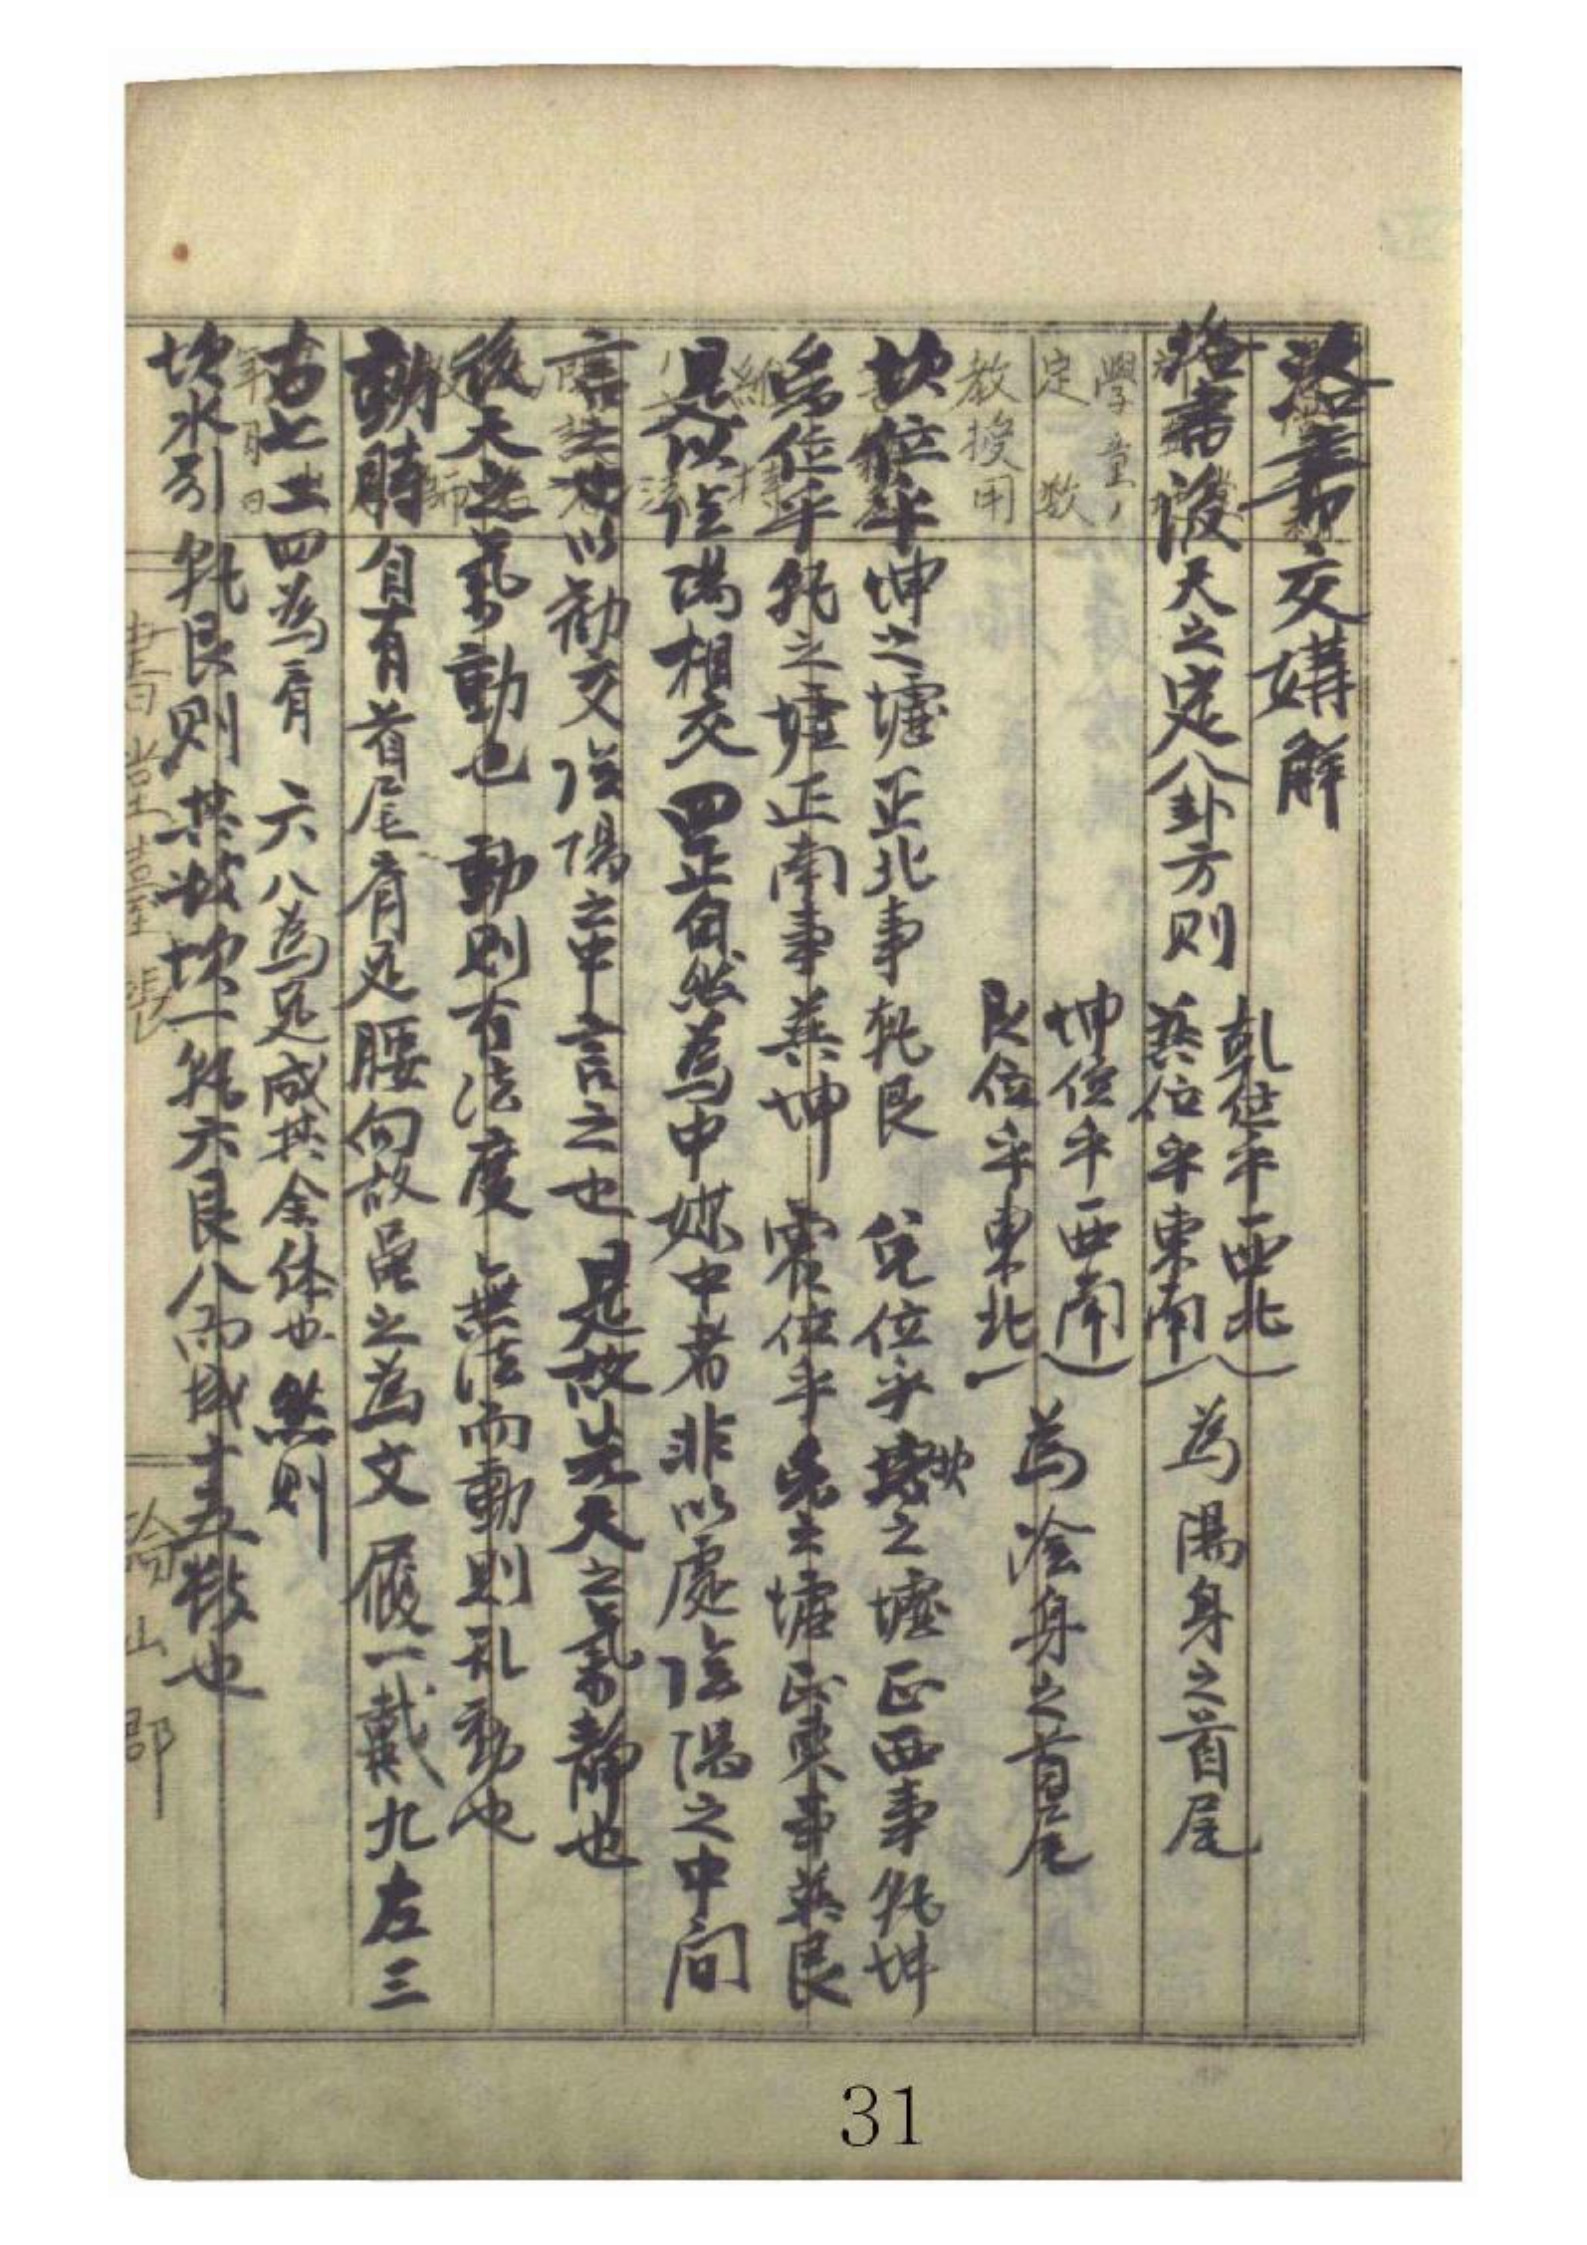 洛書交媾解
洛書後天之定八卦方則
乹位乎西北
巽位乎東南
為陽身之首尾
坤位乎西南
艮位乎東北
為陰身之首尾
坎位乎坤之墟正北事乹艮 兌位乎坎之墟正西事乹坤
离位乎乹之墟正南事巽坤 震位乎离之墟正東事巽艮
是以陰陽相交四正自然為中媒中者非以處陰陽之中間
言之也以勸交陰陽之中言之也是故先天之氣靜也
後天之氣動也 動則有法度 無法而動則乱動也
動時自有首尾肩足腰向故 之為文 履一戴九左三
右七二四為肩 六八為足咸其全体也 然則
坎水引乹艮則其 坎一乹六艮八而成十五數也
學童ノ
定数
教授用
年月日
郡
31